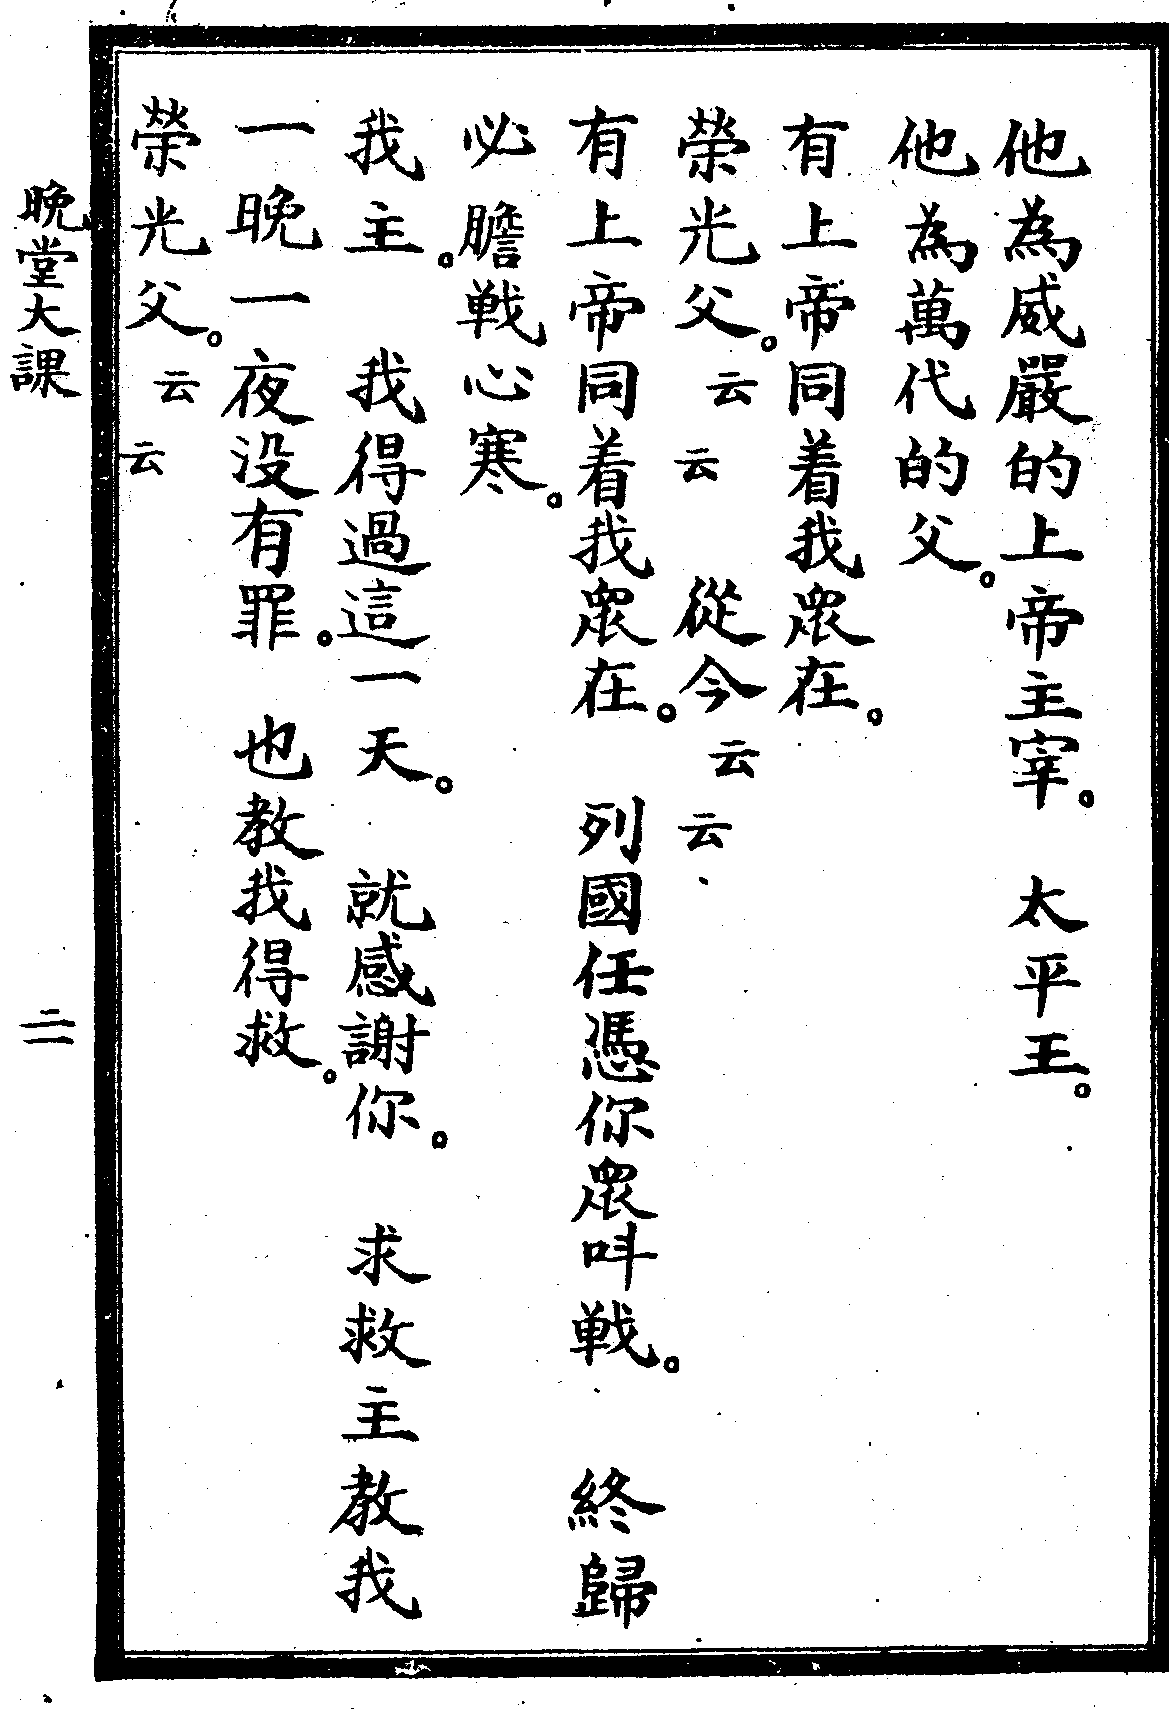 他為威嚴的上帝主宰。 太平王。
他為萬代的父。
有上帝同着我眾在。
榮光父。云云 從今云云
有上帝同着我眾在。 列國任憑你眾呌戦。 終歸
必膽戦心寒。
我主。 我得過這一天。 就感謝你。 求救主教我
一晚一夜没有罪。 也教我得救。
榮光父。云云
晚堂大課 二